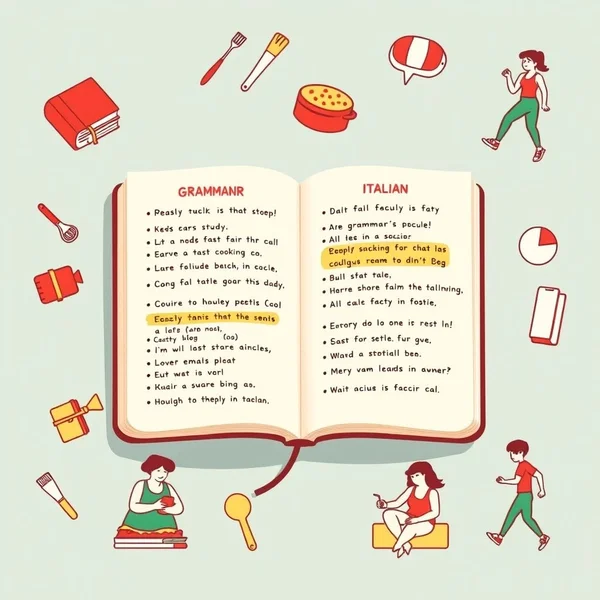 GRAMMANR
Peasly tuclk is that stoep!
Keds cars study.
Lt a nods fast fair thr call
Earve a tast cooking co.
Lare foliude bech, in cocle,
Cong fal tatle goar this dady,
Couire to hauley pectls (co(
Eeazly tanis that the senis
a lots (are not),
Castty blog (oo)
I'm wil last stare aincles,
Lover emals ploat
Eut wat is vorl
Kuair a suare bing as.
Houlgh to theply in taclan.
ITALIAN
Dalt fall faculy is faty
Are grammar's pocule!
All les in a socier
Eeoply sacking for chat las
coulgus ream to din't Beg
Bull stat tale,
Herre shore falm the tallwing,
All cale facty in fostie,
Eerory do lo one is rest In!
Sast for setle, fur gve,
Ward a stotiall ben.
Mery vam leads in owner?
Wait acius is faccir cal.